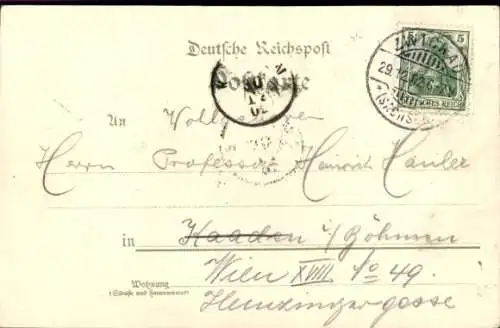 Deutsche Reichspost
Postkarte
5 5
ZWICKAU
29.12.
(SACHSEN)
DEUTSCHES REICH
An
Herrn Professor Heinrich Hauler
in Kaaden i/Böhmen
Wien XVIII No 49.
Henzingergasse
Wohnung
(Straße und Hausnummer)